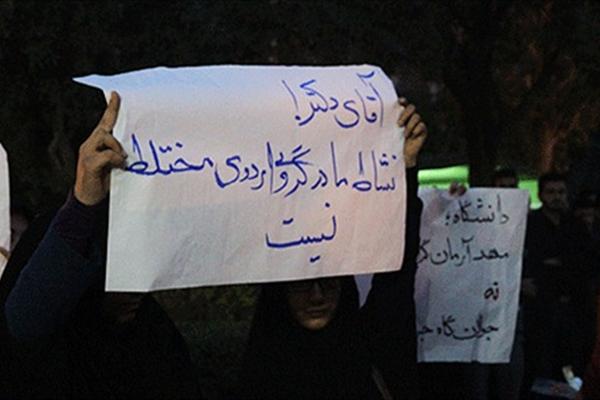 آقای دکتر!
نشاط ما در گروی اردوی مختلط
نیست
دانشگاه؛
مهد آرمان
نه
جولان‌گاه